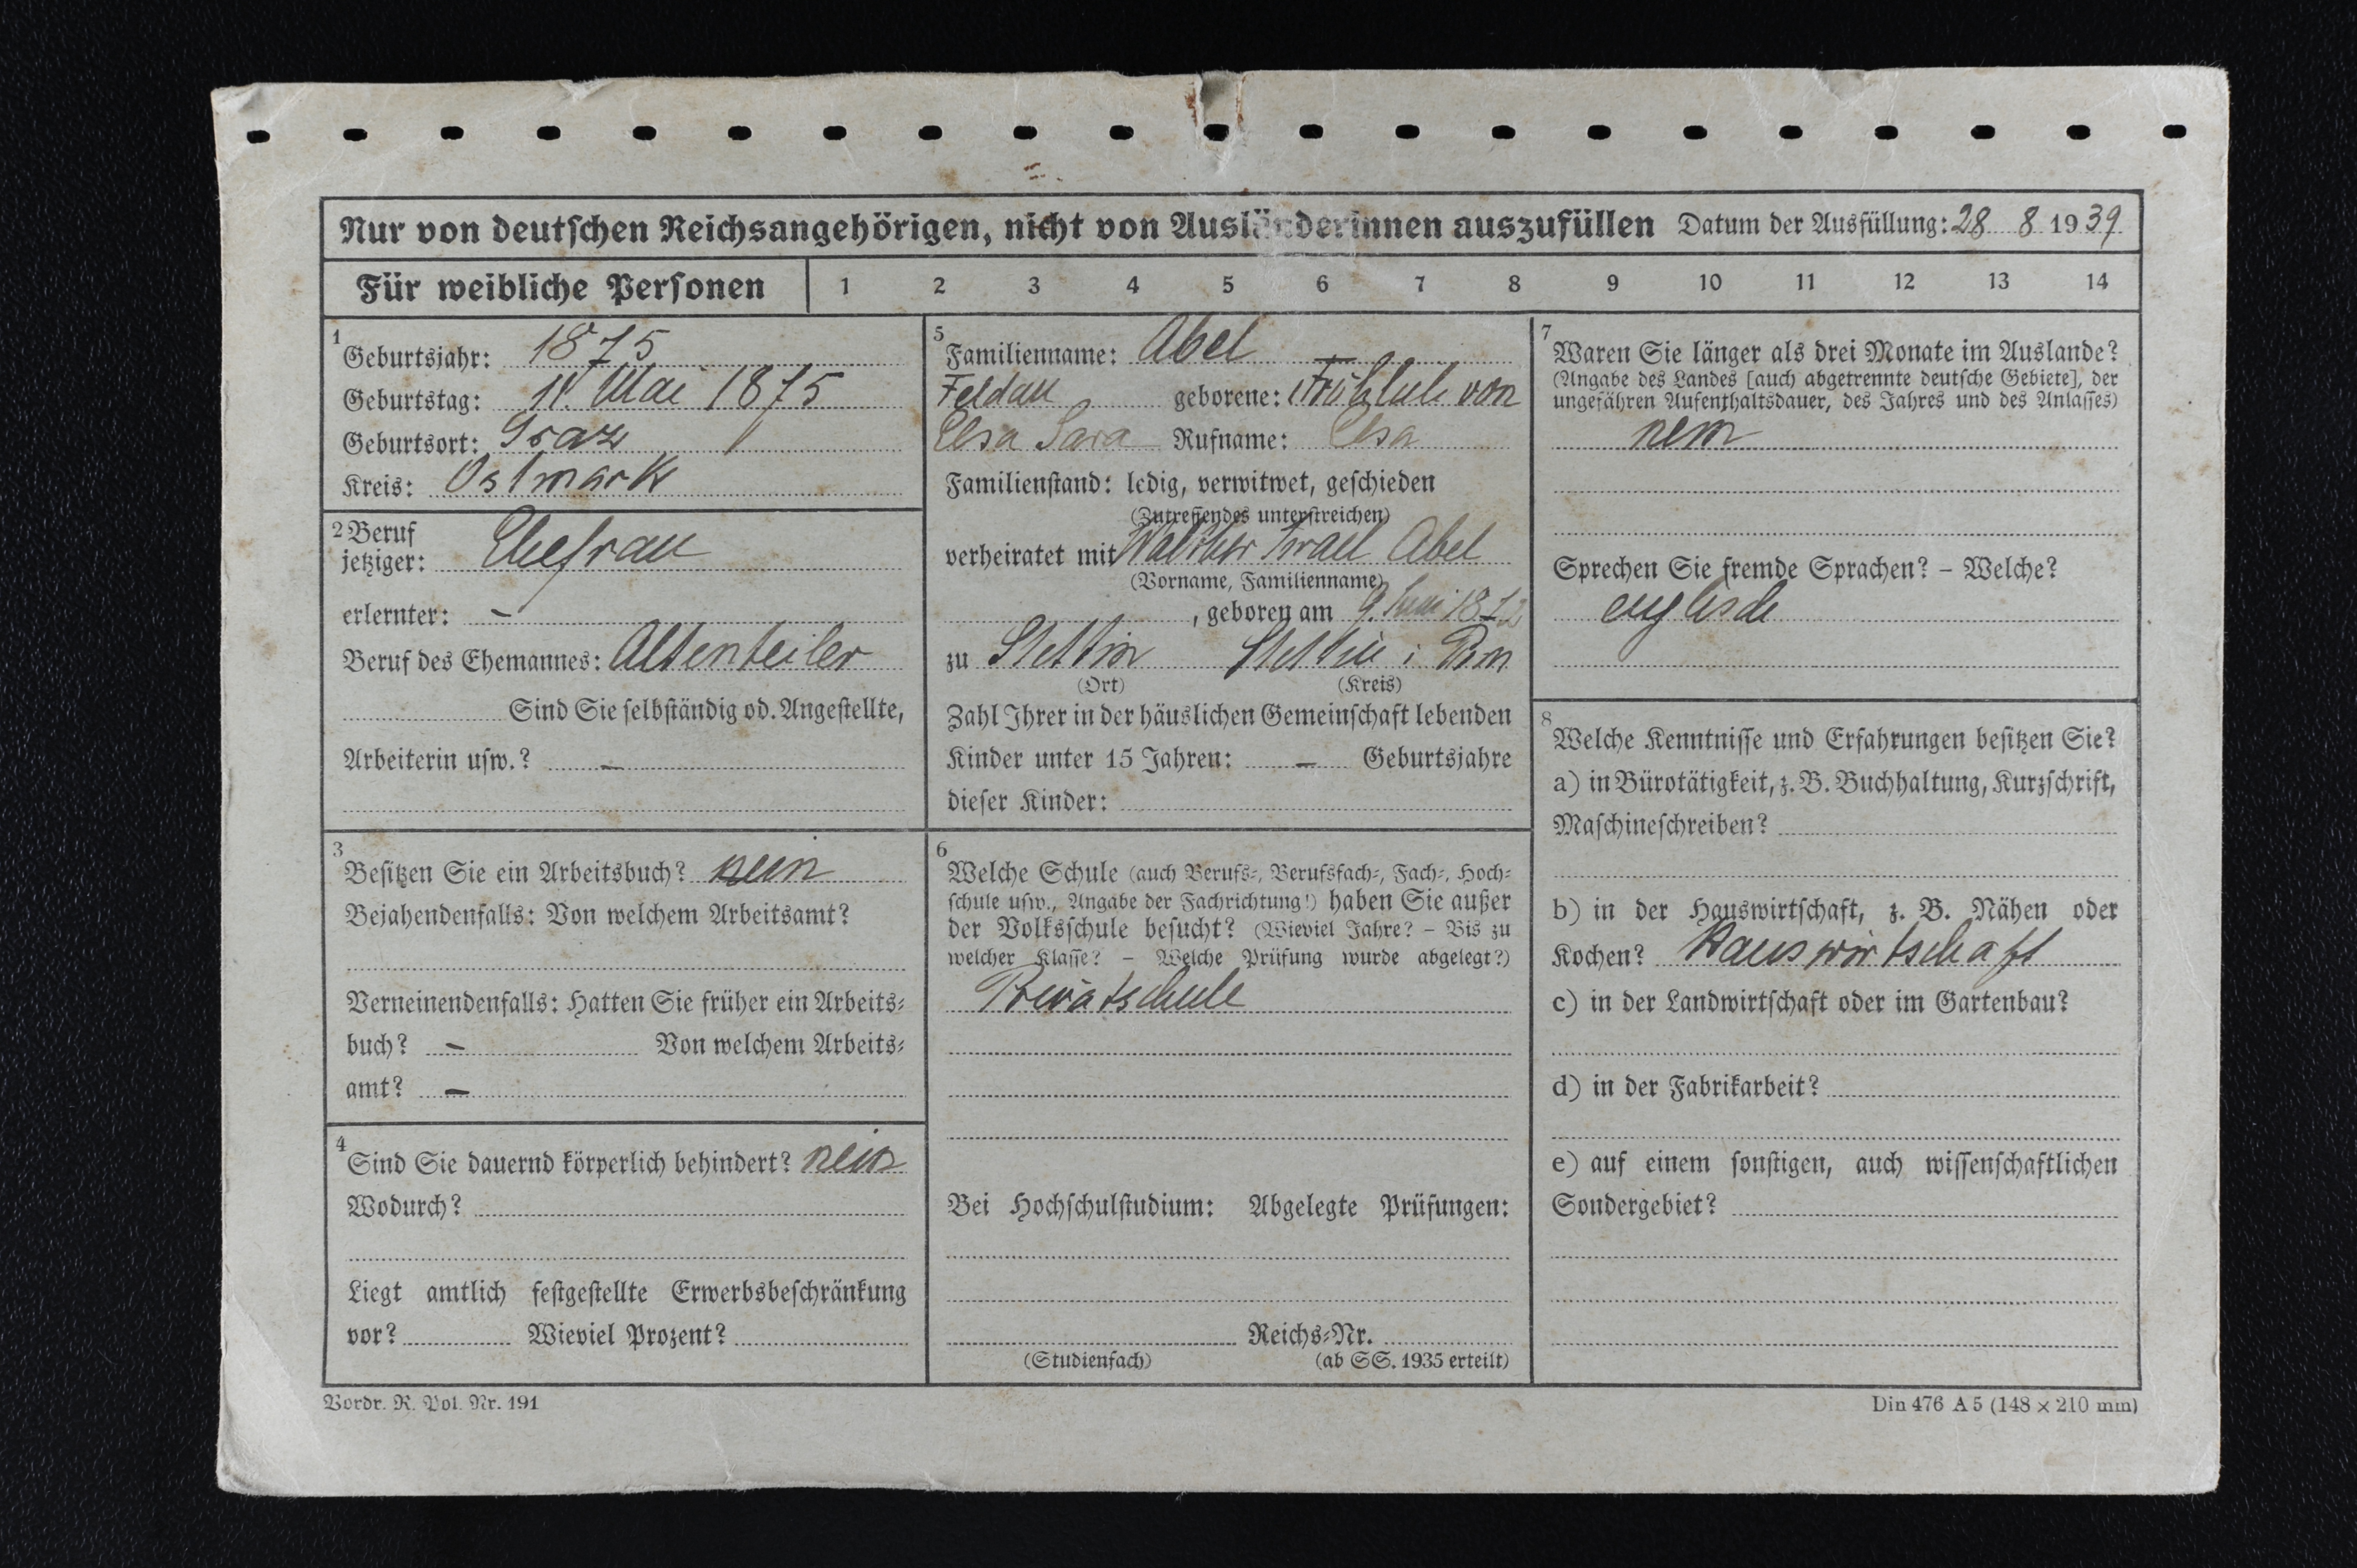 Nur von deutschen Reichsangehörigen, nicht von Ausländerinnen auszufüllen Datum der Ausfüllung: 28 8 1939
Für weibliche Personen 1 2 3 4 5 6 7 8 9 10 11 12 13 14
1
Geburtsjahr: 1875
Geburtstag: Mai 1875
Geburtsort: Graz
Kreis: Ostmark
2 Beruf
jetziger: Ehefrau
erlernter: –
Beruf des Ehemannes: Altenteiler
Sind Sie selbständig od. Angestellte,
Arbeiterin usw.? –
3
Besitzen Sie ein Arbeitsbuch? nein
Bejahendenfalls: Von welchem Arbeitsamt?
Verneinendenfalls: Hatten Sie früher ein Arbeits-
buch? – Von welchem Arbeits-
amt? –
4
Sind Sie dauernd körperlich behindert? nein
Wodurch?
Liegt amtlich festgestellte Erwerbsbeschränkung
vor? Wieviel Prozent?
5
Familienname: Abel
Feldau geborene: Fröhlich von
Elsa Sara Rufname: Elsa
Familienstand: ledig, verwitwet, geschieden
(Zutreffendes unterstreichen)
verheiratet mit Walther Israel Abel
(Vorname, Familienname)
, geboren am 9. Juni 1872
zu Stettin Stettin i Pom
(Ort) (Kreis)
Zahl Ihrer in der häuslichen Gemeinschaft lebenden
Kinder unter 15 Jahren: – Geburtsjahre
dieser Kinder:
6
Welche Schule (auch Berufs-, Berufsfach-, Fach-, Hoch-
schule usw., Angabe der Fachrichtung!) haben Sie außer
der Volksschule besucht? (Wieviel Jahre? – Bis zu
welcher Klasse? – Welche Prüfung wurde abgelegt?)
Privatschule
Bei Hochschulstudium: Abgelegte Prüfungen:
Reichs-Nr.
(Studienfach) (ab SS. 1935 erteilt)
7
Waren Sie länger als drei Monate im Auslande?
(Angabe des Landes [auch abgetrennte deutsche Gebiete], der
ungefähren Aufenthaltsdauer, des Jahres und des Anlasses)
nein
Sprechen Sie fremde Sprachen? – Welche?
englisch
8
Welche Kenntnisse und Erfahrungen besitzen Sie?
a) in Bürotätigkeit, z. B. Buchhaltung, Kurzschrift,
Maschineschreiben?
b) in der Hauswirtschaft, z. B. Nähen oder
Kochen? Hauswirtschaft
c) in der Landwirtschaft oder im Gartenbau?
d) in der Fabrikarbeit?
e) auf einem sonstigen, auch wissenschaftlichen
Sondergebiet?
Vordr. R. Pol. Nr. 191
Din 476 A 5 (148 × 210 mm)